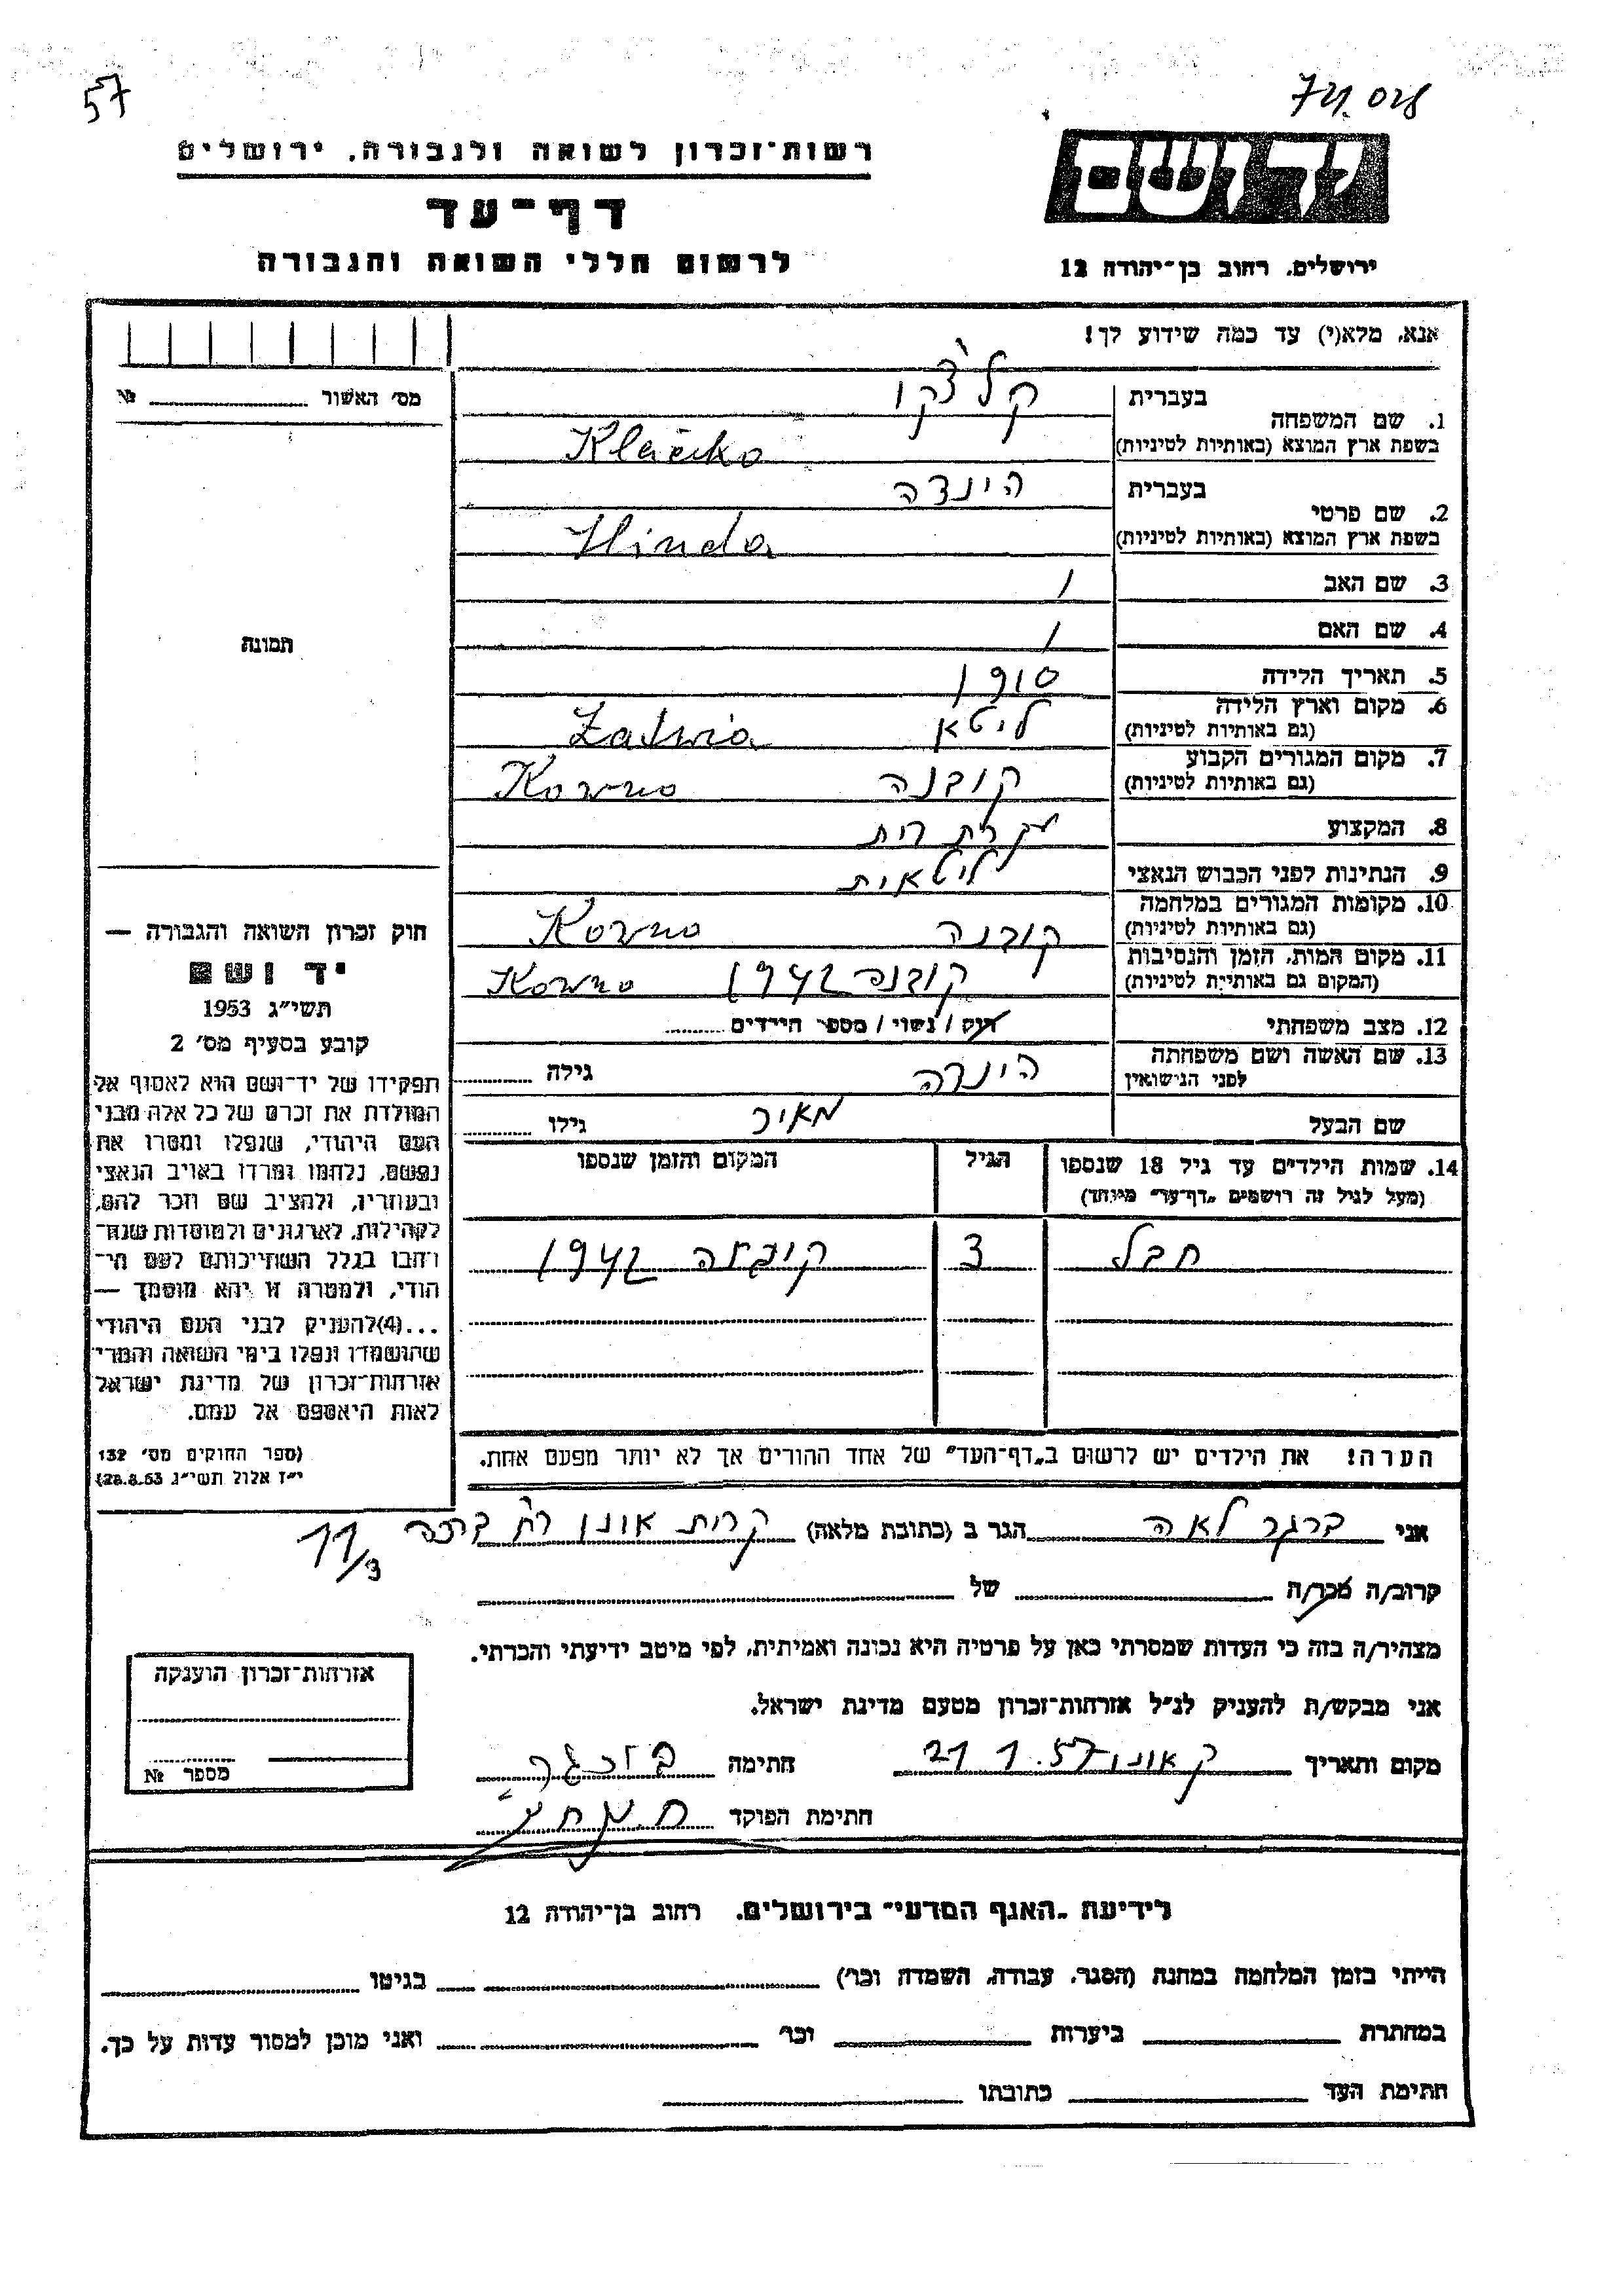 57
74.028
רשות־זכרון לשואה ולגבורה, ירושלים
דף־עד
לרשום חללי השואה והגבורה
יד ושם
ירושלים, רחוב בן־יהודה 12
אנא, מלא(י) עד כמה שידוע לך!
מס׳ האשור № 
1. שם המשפחה
בעברית קלצ׳קו
בשפת ארץ המוצא (באותיות לטיניות) Klačko
2. שם פרטי
בעברית הינדה
בשפת ארץ המוצא (באותיות לטיניות) Hinda
3. שם האב /
4. שם האם /
5. תאריך הלידה 1910
6. מקום וארץ הלידה
(גם באותיות לטיניות) ליטא
7. מקום המגורים הקבוע
(גם באותיות לטיניות) קובנה Kovno
8. המקצוע עקרת בית
9. הנתינות לפני הכבוש הנאצי ליטאית
10. מקומות המגורים במלחמה
(גם באותיות לטיניות) קובנה Kovno
11. מקום המות, הזמן והנסיבות
(המקום גם באותיות לטיניות) קובנה 1942 Kovno
12. מצב משפחתי רוק / נשוי / מספר הילדים
13. שם האשה ושם משפחתה
לפני הנישואין הינדה גילה
שם הבעל מאיר גילו
14. שמות הילדים עד גיל 18 שנספו הגיל המקום והזמן שנספו
(מעל לגיל זה רושמים „דף־עד״ מיוחד)
הבל 3 קובנה 1942
הערה! את הילדים יש לרשום ב„דף־העד״ של אחד ההורים אך לא יותר מפעם אחת.
תמונה
חוק זכרון השואה והגבורה —
יד ושם
תשי״ג 1953
קובע בסעיף מס׳ 2
תפקידו של יד־ושם הוא לאסוף אל
המולדת את זכרם של כל אלה מבני
העם היהודי, שנפלו ומסרו את
נפשם, נלחמו ומרדו באויב הנאצי
ובעוזריו, ולהציב שם וזכר להם,
לקהילות, לארגונים ולמוסדות שנח־
רבו בגלל השתייכותם לעם הי־
הודי, ולמטרה זו יהא מוסמך —
...(4) להעניק לבני העם היהודי
שהושמדו ונפלו בימי השואה והמרי
אזרחות־זכרון של מדינת ישראל
לאות היאספם אל עמם.
(ספר החוקים מס׳ 132
י״ז אלול תשי״ג 28.8.53)
אני ברגר לאה הגר ב (כתובת מלאה) קרית אונו רח׳ 11/3
קרוב/ה מכר/ה של
מצהיר/ה בזה כי העדות שמסרתי כאן על פרטיה היא נכונה ואמיתית, לפי מיטב ידיעתי והכרתי.
אני מבקש/ת להעניק לנ״ל אזרחות־זכרון מטעם מדינת ישראל.
מקום ותאריך ק אונו 21.1.57 חתימה ברגר
חתימת הפוקד
אזרחות־זכרון הוענקה
מספר №
לידיעת „האגף המדעי״ בירושלים, רחוב בן־יהודה 12
הייתי בזמן המלחמה במחנה (הסגר, עבודה, השמדה וכו׳) בגיטו
במחתרת ביערות וכו׳ ואני מוכן למסור עדות על כך.
חתימת העד כתובתו